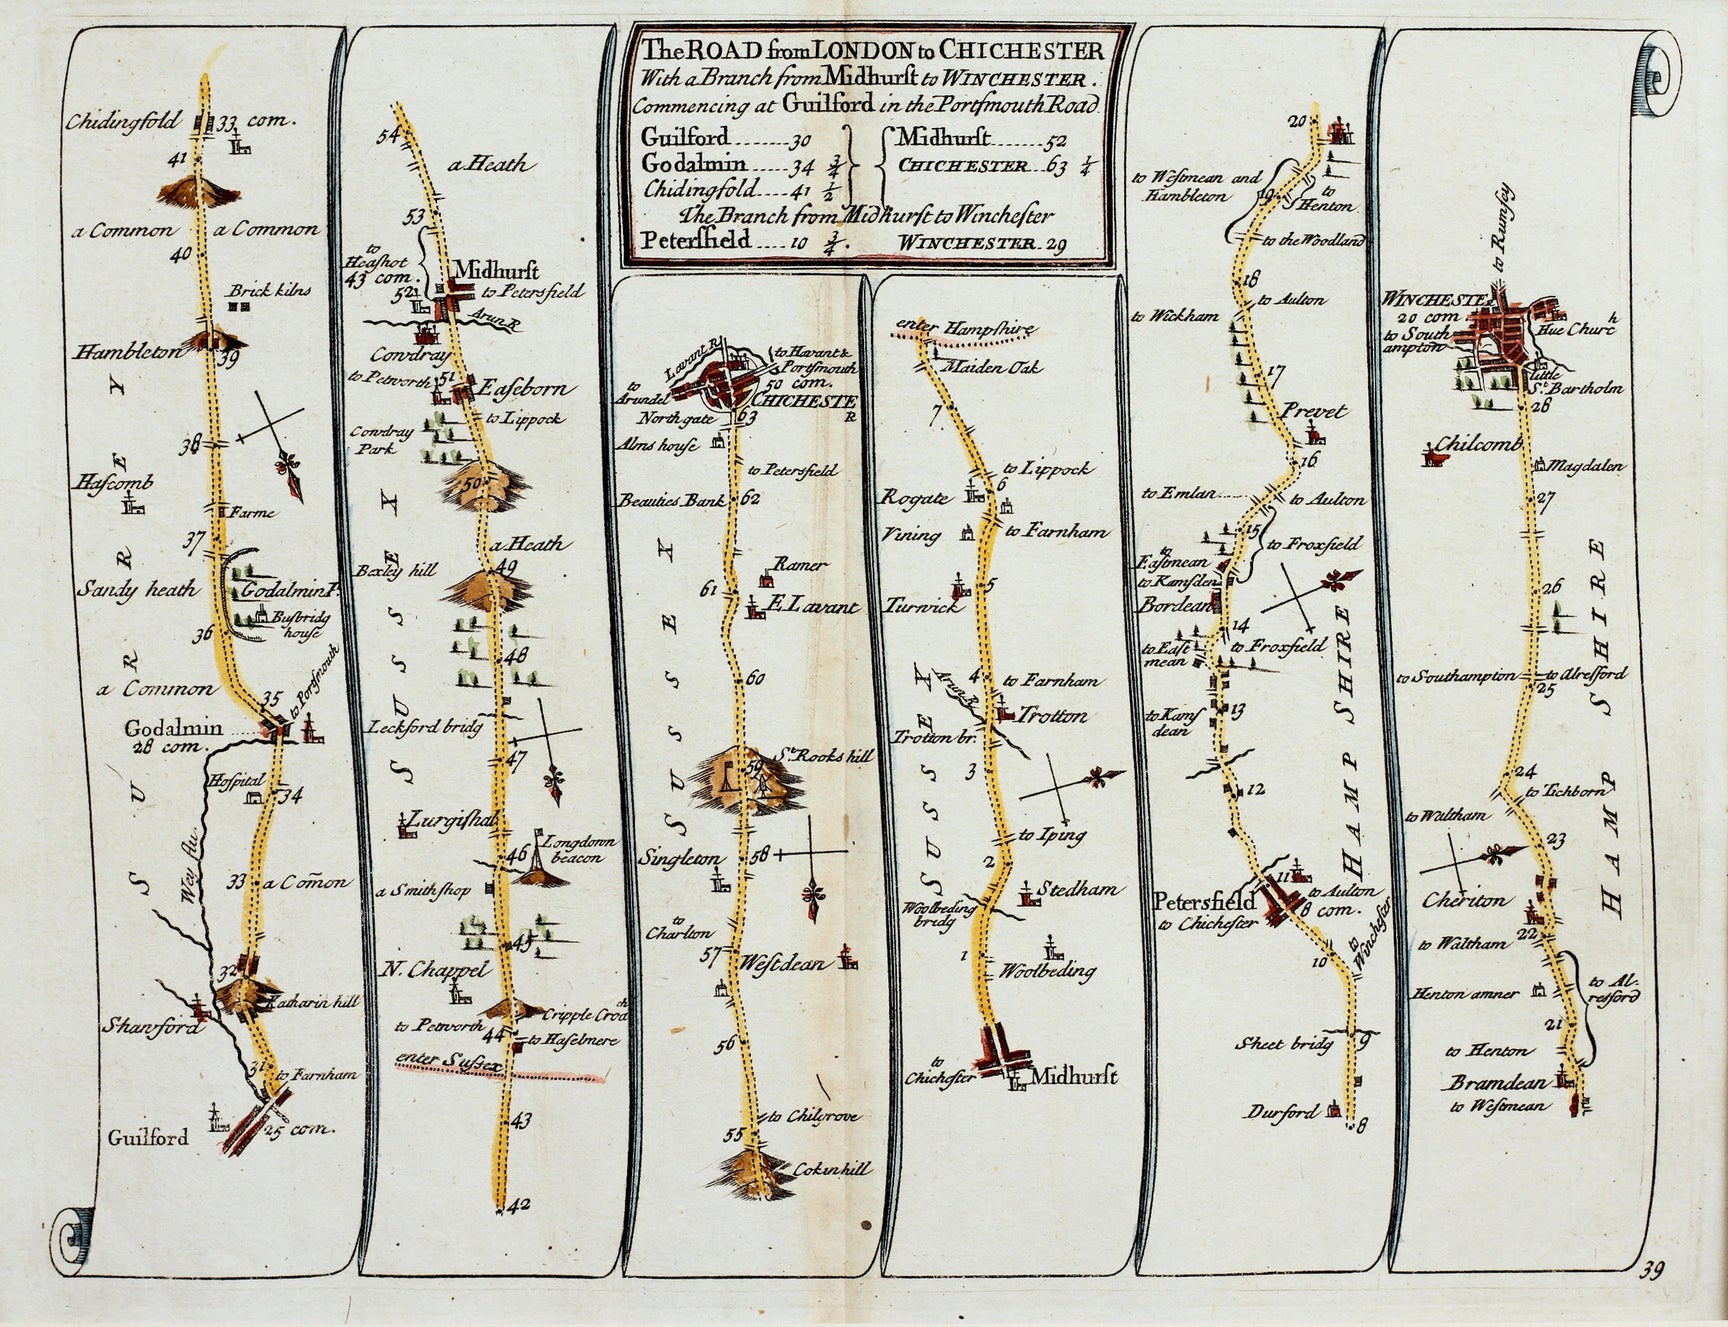 The ROAD from LONDON to CHICHESTER
With a Branch from Midhurſt to WINCHESTER.
Commencing at Guilford in the Portſmouth Road
Guilford........30
Godalmin.......34 3/4
Chidingfold....41 1/2
Midhurſt......52
CHICHESTER...63 1/4
The Branch from Midhurſt to Wincheſter
Petersfield.....10 3/4.
WINCHESTER..29
Chidingfold
33 com.
41
a Common
a Common
40
Brick kilns
Hambleton
39
38
Haſcomb
Farme
37
Sandy heath
Godalmin P.
Buſbridg
houſe
36
a Common
35
to Portſmouth
Godalmin
28 com.
Hoſpital
34
Wey flu.
33
a Com̄on
32
Katharin hill
Shawford
31
to Farnham
Guilford
25 com.
SURREY
54
a Heath
53
to
Heaſhot
43 com.
Midhurſt
52
to Petersfield
Arun R
Cowdray
to Petworth
51
Eaſeborn
to Lippock
Cowdray
Park
50
a Heath
Bexley hill
49
48
Leckford bridg
47
Lurgiſhal
46
Longdown
beacon
a Smith ſhop
45
N. Chappel
Cripple Crouch
to Petworth
44
to Haſelmere
enter Suſſex
43
42
SUSSEX
Lavant R
to Havant &
Portſmouth
50 com.
to
Arundel
CHICHESTER
North gate
63
Alms houſe
to Petersfield
Beauties Bank
62
Ramer
61
E. Lavant
60
St. Rooks hill
59
Singleton
58
to
Charlton
57
Weſtdean
56
to Chilgrove
55
Cokin hill
SUSSEX
enter Hampſhire
Maiden Oak
7
to Lippock
6
Rogate
Vining
to Farnham
5
Turwick
4
to Farnham
Arun R
Trotton
Trotton br.
3
to Iping
2
Stedham
Woolbeding
bridg
1
Woolbeding
to
Chicheſter
Midhurſt
SUSSEX
20
to Weſtmean and
Hambleton
19
to
Henton
to the Woodland
18
to Aulton
to Wickham
17
Prevet
16
to Emlan
to Aulton
15
to Froxfield
to
Eaſtmean
to Ramſden
Bordean
14
to Eaſt
mean
to Froxfield
to Ramſ
dean
13
12
11
Petersfield
to Aulton
8 com.
to Chicheſter
to
Wincheſter
10
Sheet bridg
9
Durford
8
HAMP SHIRE
to Rumſey
WINCHESTER
20 com
to South
ampton
Hue Church
Little
St. Bartholm
28
Chilcomb
Magdalen
27
26
to Southampton
to Alresford
25
24
to Tichborn
to Waltham
23
Cheriton
22
to Waltham
to Al-
resford
Henton amner
21
to Henton
Bramdean
to Weſtmean
HAMP SHIRE
39